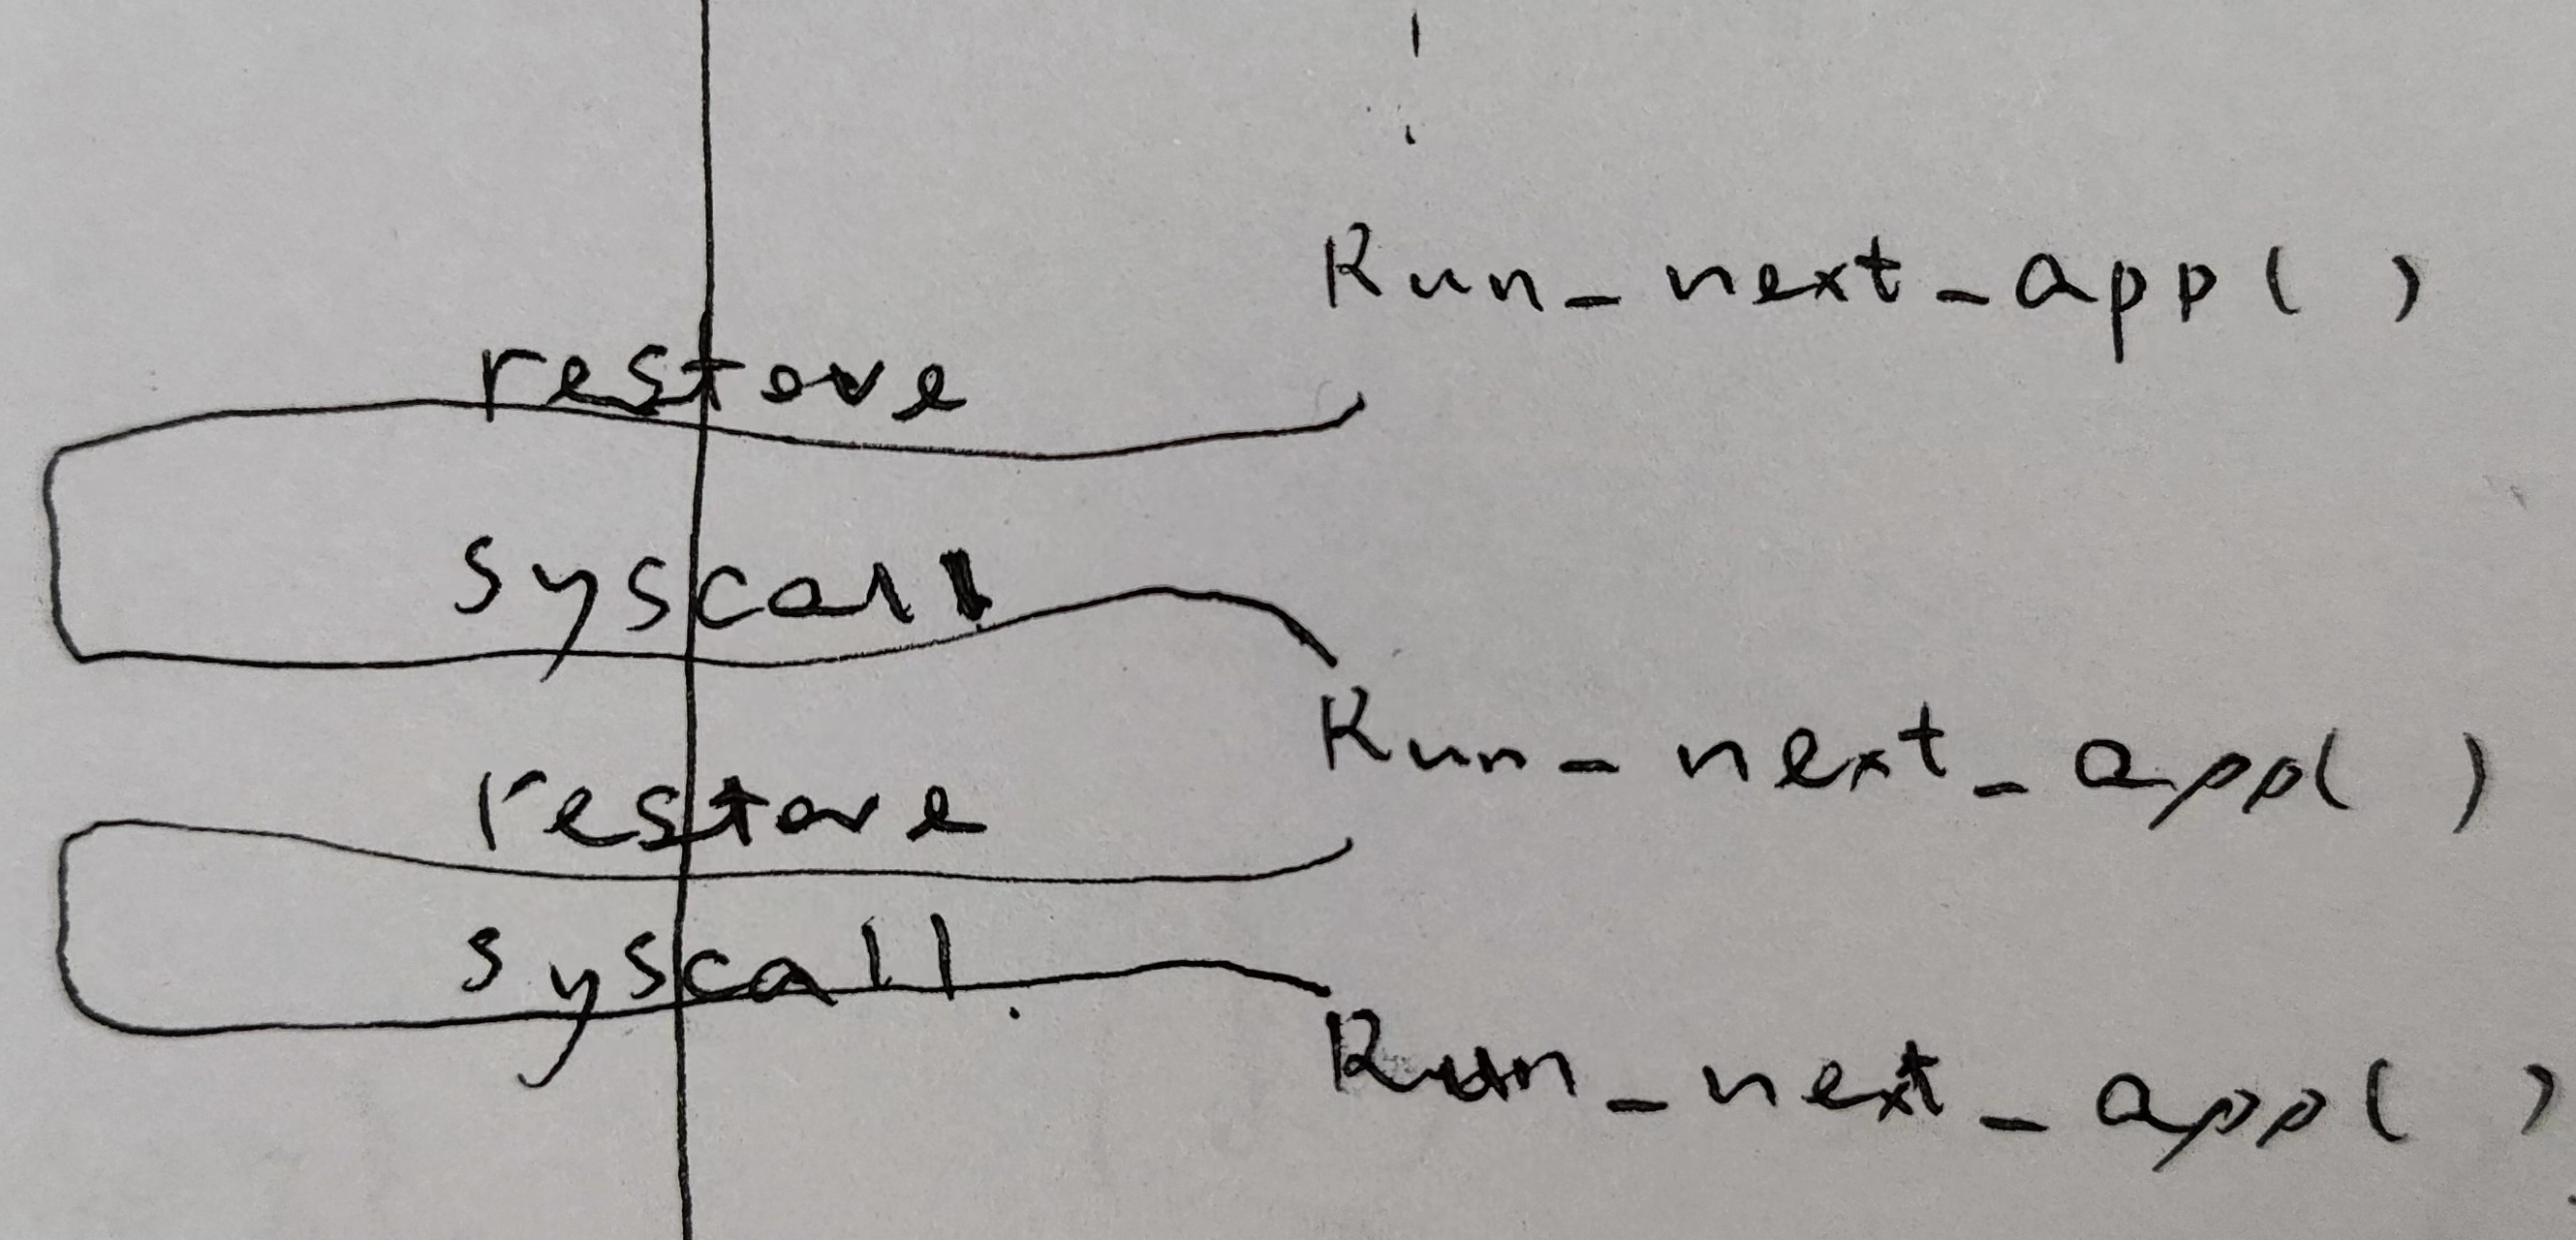 Run_next_app( )
restore
syscall
Run_next_app( )
restore
syscall.
Run_next_app( )